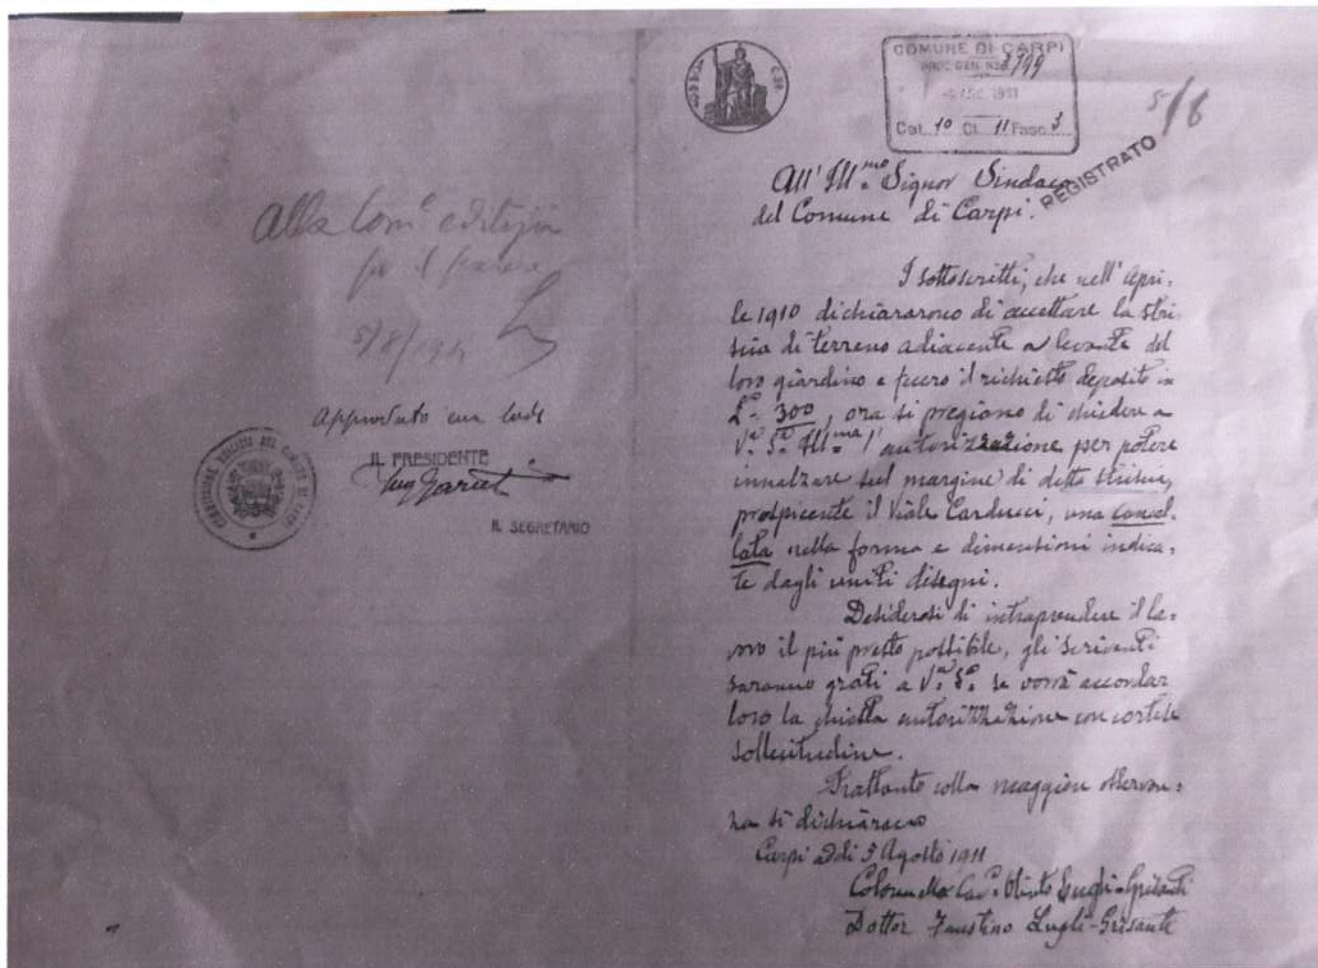 Alla Com.e edilizia
per il parere
5/8/911
Approvato con lode
COMMISSIONE EDILIZIA DEL COMUNE DI CARPI
IL PRESIDENTE
IL SEGRETARIO
COMUNE DI CARPI
PROT. GEN. N. 3799
AGO. 1911
Cat. 10 Cl. 11 Fasc. 3
5/8
REGISTRATO
All' Ill.mo Signor Sindaco
del Comune di Carpi.
I sottoscritti, che nell' Apri-
le 1910 dichiararono di accettare la stri-
scia di terreno adiacente a levante del
loro giardino e fecero il richiesto deposito in
L. 300, ora si pregiano di chiedere a
V.a S.a Ill.ma l' autorizzazione per potere
innalzare sul margine di detta striscia,
prospicente il Viale Carducci, una cancel-
lata nella forma e dimensioni indica-
te dagli uniti disegni.
Desiderosi di intraprendere il la-
voro il più presto possibile, gli scriventi
saranno grati a V.a S.a se vorrà accordar
loro la chiesta autorizzazione con cortese
sollecitudine.
Frattanto colla maggiore osservan-
za si dichiarano
Carpi addì 5 Agosto 1911
Colonnello Cav. Olinto Lugli-Grisanti
Dottor Faustino Lugli-Grisanti